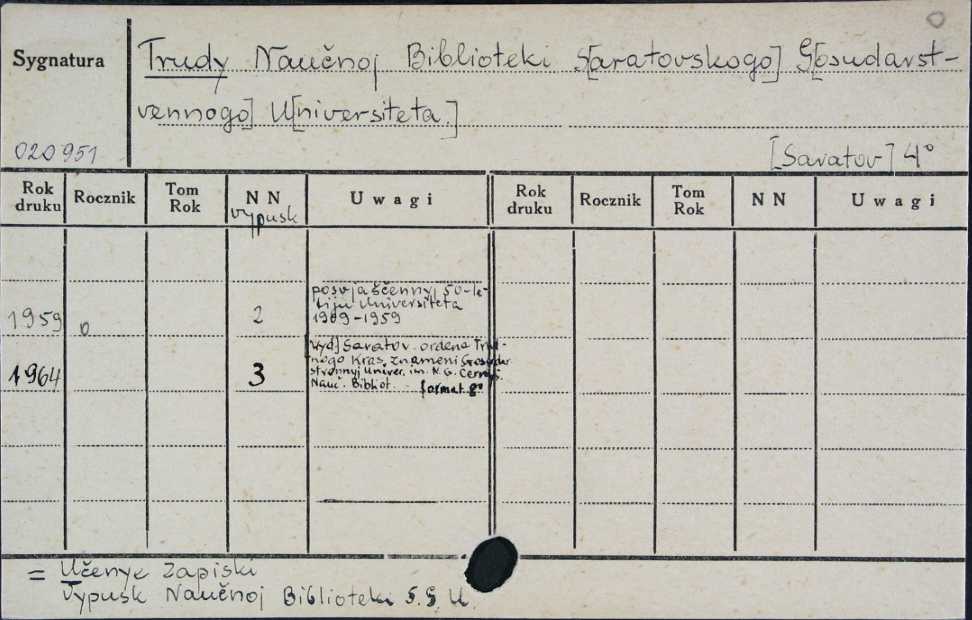 Sygnatura
Trudy Naučnoj Biblioteki S[aratovskogo] G[osudarst-
vennogo] U[niversiteta.]
020951
[Saratov] 4°
Rok druku Rocznik Tom Rok N N Uwagi Rok druku Rocznik Tom Rok N N Uwagi
Vypusk
posvjaščennyj 50-le-
tiju Universiteta
1959 0 2 1909-1959
[Wyd] Saratov. ordena Trud-
nogo Kras. Znameni Gosudar
1964 3 stvennyj Univer. im. N. G. Černyš.
Nauč. Bibliot. - format 8°
= Učenye Zapiski
Vypusk Naučnoj Biblioteki S. G. U.